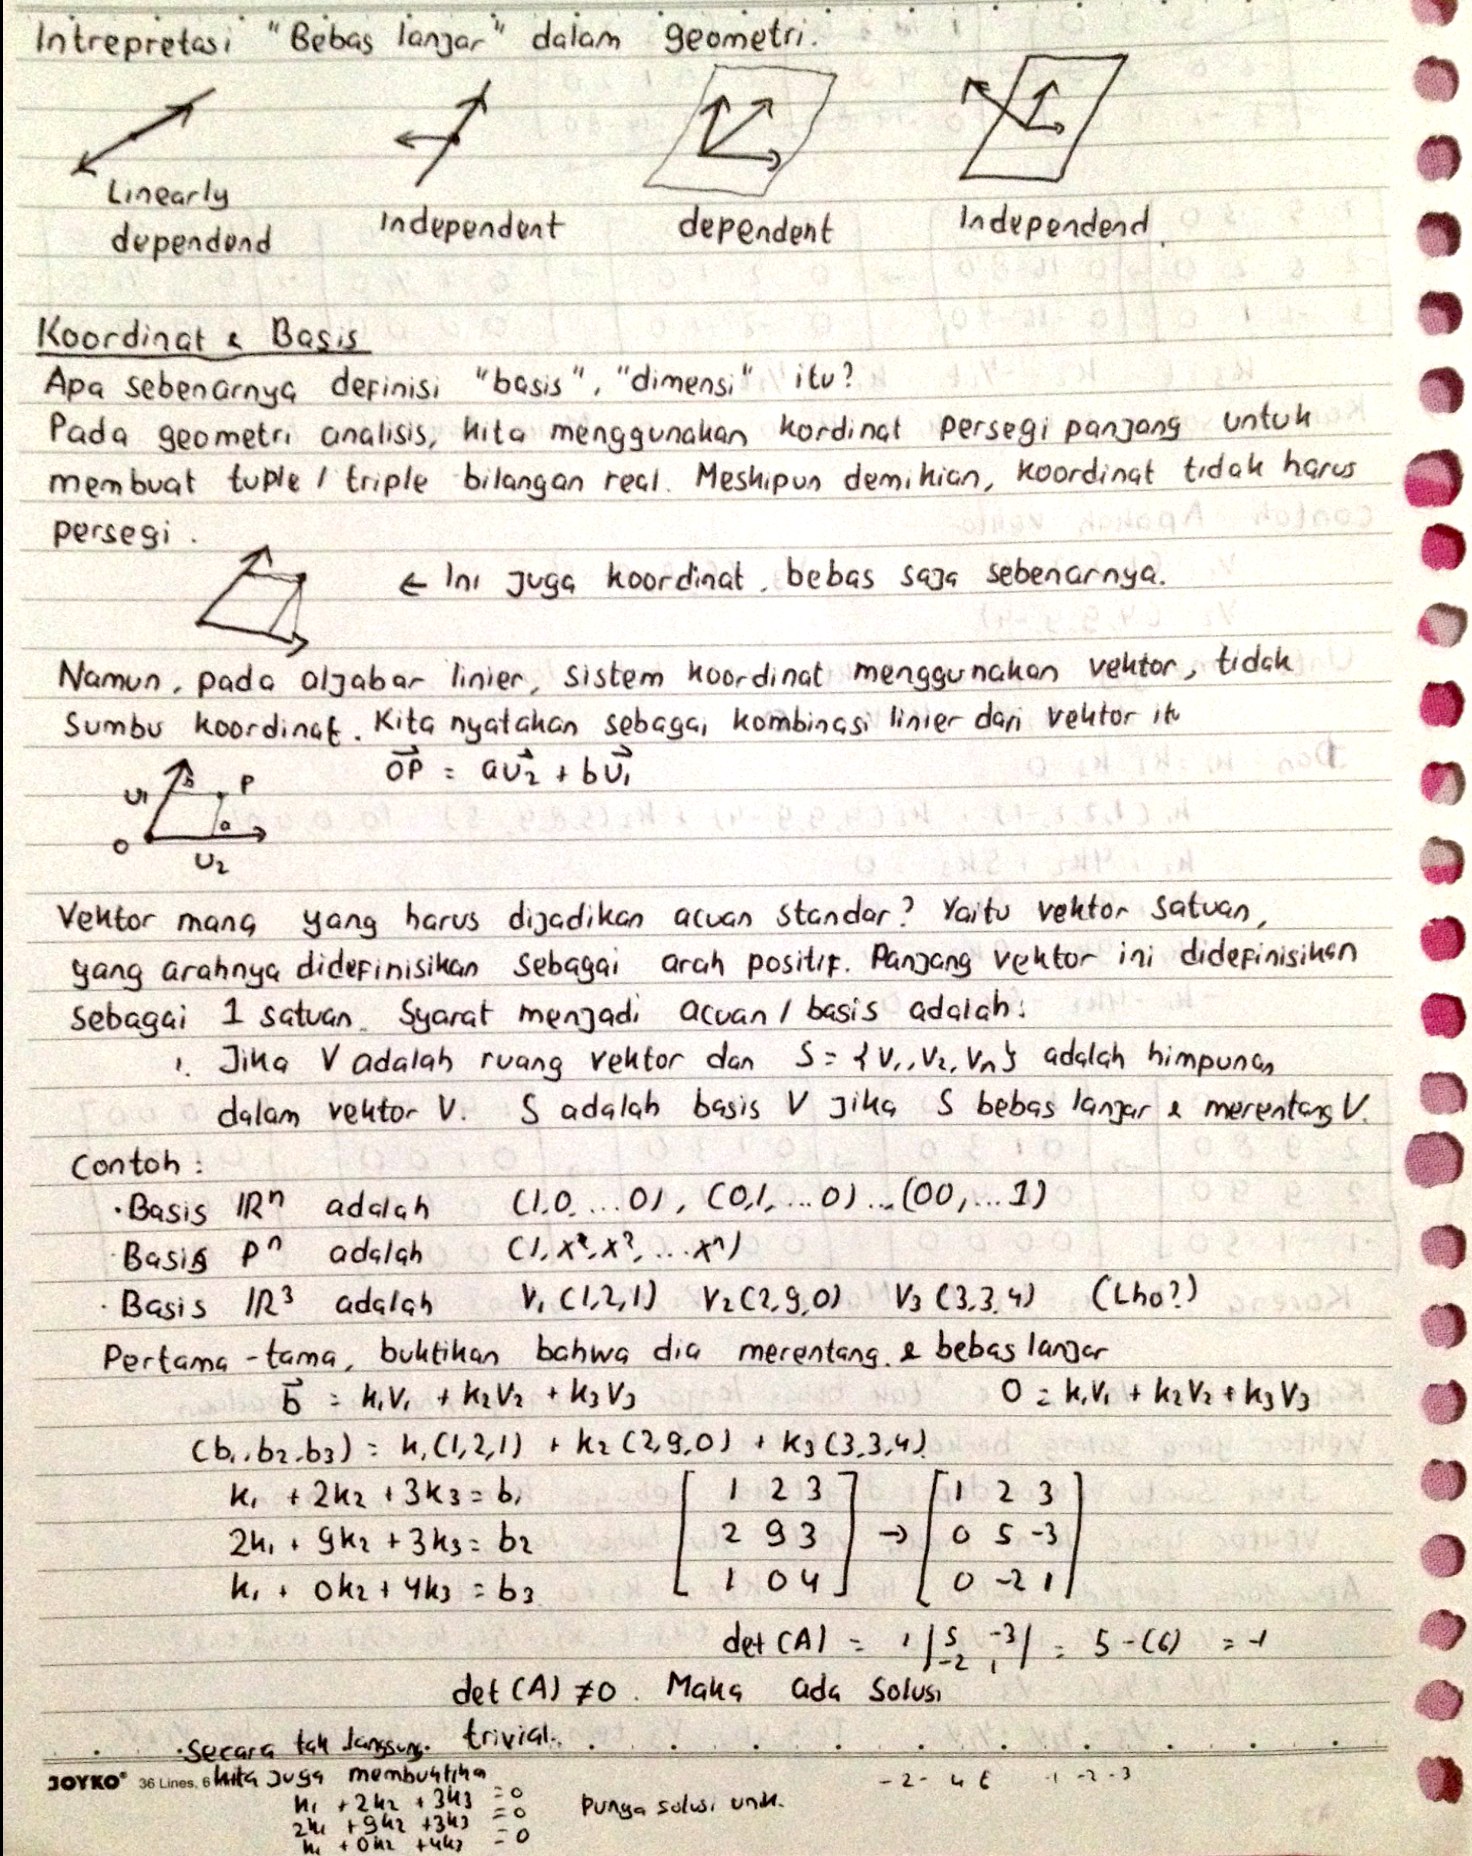 Intrepretasi "Bebas lanjar" dalam geometri.
Linearly dependend
Independent
dependent
Independend
Koordinat & Basis
Apa sebenarnya definisi "basis", "dimensi" itu?
Pada geometri analisis, kita menggunakan kordinat persegi panjang untuk
membuat tuple / triple bilangan real. Meskipun demikian, koordinat tidak harus
persegi.
← Ini juga koordinat, bebas saja sebenarnya.
Namun, pada aljabar linier, sistem koordinat menggunakan vektor, tidak
sumbu koordinat. Kita nyatakan sebagai kombinasi linier dari vektor itu
OP⃗ = au₂⃗ + bu₁⃗
u₁ b P
a
O
u₂
Vektor mana yang harus dijadikan acuan standar? Yaitu vektor satuan,
yang arahnya didefinisikan sebagai arah positif. Panjang vektor ini didefinisikan
sebagai 1 satuan. Syarat menjadi acuan / basis adalah:
1. Jika V adalah ruang vektor dan S = {V₁, V₂, Vₙ} adalah himpunan
dalam vektor V. S adalah basis V jika S bebas lanjar & merentang V.
Contoh:
· Basis ℝⁿ adalah (1,0,...0), (0,1,...0)...(00,...1)
· Basis Pⁿ adalah (1, x², x³, ...xⁿ)
· Basis ℝ³ adalah V₁ (1,2,1) V₂ (2,9,0) V₃ (3,3,4) (Lho?)
Pertama-tama, buktikan bahwa dia merentang & bebas lanjar
b⃗ = k₁V₁ + k₂V₂ + k₃V₃ 0 = k₁V₁ + k₂V₂ + k₃V₃
(b₁,b₂,b₃) = k₁(1,2,1) + k₂(2,9,0) + k₃(3,3,4)
k₁ + 2k₂ + 3k₃ = b₁ [1 2 3] [1 2 3]
2k₁ + 9k₂ + 3k₃ = b₂ [2 9 3] → [0 5 -3]
k₁ + 0k₂ + 4k₃ = b₃ [1 0 4] [0 -2 1]
det(A) = 1 |5 -3 -2 1| = 5-(6) = -1
det(A) ≠ 0. Maka ada solusi
trivial.
· Secara tak langsung.
JOYKO® 36 Lines, 6
kita juga membuktika
-2 - 4 6 -1 -2 -3
k₁ + 2k₂ + 3k₃ = 0
2k₁ + 9k₂ + 3k₃ = 0 Punya solusi unik.
k₁ + 0k₂ + 4k₃ = 0